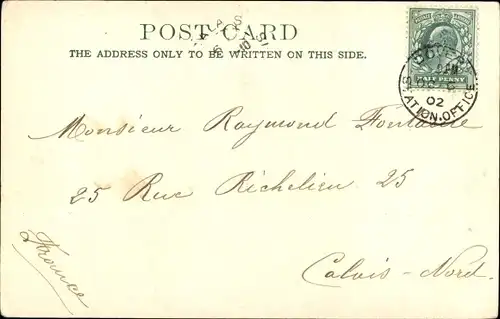 POST CARD
THE ADDRESS ONLY TO BE WRITTEN ON THIS SIDE.
HALF PENNY
02
STATION.OFFICE
Monsieur Raymond Fontaine
25 Rue Richelieu 25
Calais-Nord.
France